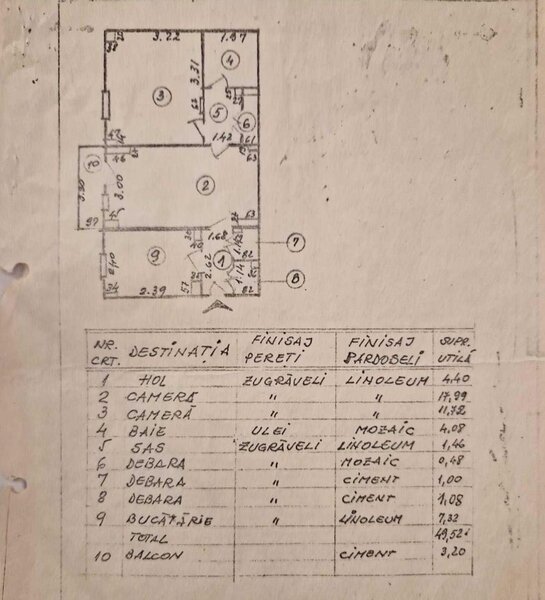 3.22
1.97
4
3.31
3
62
25
5
6
47
14
1.42
61
63
10
46
3.00
3.20
2
97
63
1.68
7
9
1
2.62
1.14
82
8
34
2.39
57
82
NR. CRT. DESTINAȚIA FINISAJ PEREȚI FINISAJ PARDOSELI SUPR. UTILĂ
1 HOL ZUGRĂVELI LINOLEUM 4.40
2 CAMERĂ " " 17,99
3 CAMERĂ " " 11,72
4 BAIE ULEI MOZAIC 4.08
5 SAS ZUGRĂVELI LINOLEUM 1,46
6 DEBARA " MOZAIC 0,48
7 DEBARA " CIMENT 1,00
8 DEBARA " CIMENT 1,08
9 BUCĂTĂRIE " LINOLEUM 7,32
TOTAL 49,52
10 BALCON CIMENT 3,20